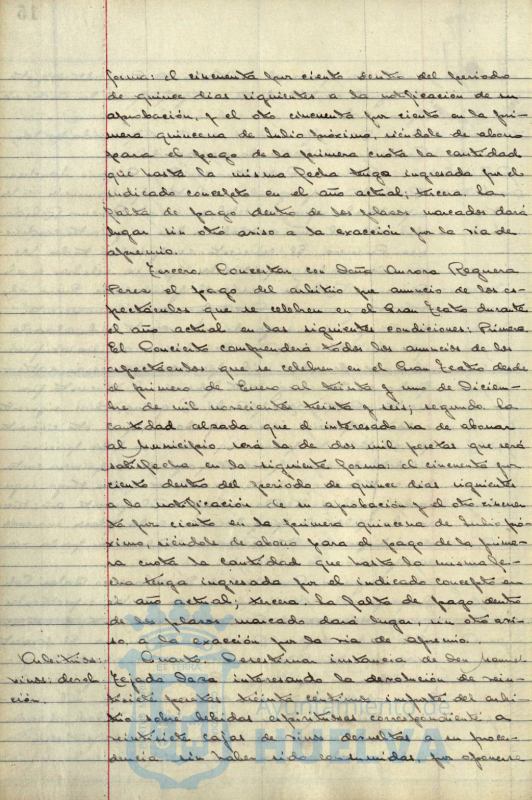 forma: el cincuenta por ciento dentro del periodo
de quince dias siguientes a la notificación de su
aprobación, y el otro cincuenta por ciento en la pri-
mera quincena de Julio próximo, siéndole de abono
para el pago de la primera cuota la cantidad
que hasta la misma fecha tenga ingresada por el
indicado concepto en el año actual; tercera. La
falta de pago dentro de los plazos marcados dará
lugar sin otro aviso a la exacción por la via de
apremio.
Tercero. Concertar con Doña Aurora Reguera
Perea el pago del arbitrio por anuncio de los es-
pectáculos que se celebren en el Gran Teatro durante
el año actual en las siguientes condiciones: Primera
El Concierto comprenderá todos los anuncios de los
espectáculos que se celebren en el Gran Teatro desde
el primero de Enero al treinta y uno de Diciem-
bre de mil novecientos treinta y seis; segundo. La
cantidad alzada que el interesado ha de abonar
al Municipio será la de dos mil pesetas que será
satisfecha en la siguiente forma: el cincuenta por
ciento dentro del periodo de quince dias siguientes
a la notificación de su aprobación y el otro cincuen-
ta por ciento en la primera quincena de Julio pró-
ximo, siéndole de abono para el pago de la prime-
ra cuota la cantidad que hasta la misma fe-
cha tenga ingresada por el indicado concepto en
el año actual; tercera. La falta de pago dentro
de los plazos marcado dará lugar, sin otro avi-
so, a la exacción por la via de apremio.
Arbitrios: Cuarto. Desestimar instancia de don Manuel
vinos: devolu- Tejado Daza interesando la devolución de vein-
ción. tisiete pesetas treinta céntimos importe del arbi-
trio sobre bebidas espirituosas correspondiente a
veintisiete cajas de vinos devueltas a su proce-
dencia sin haber sido consumidas, por oponerse
Ayuntamiento de
HUELVA